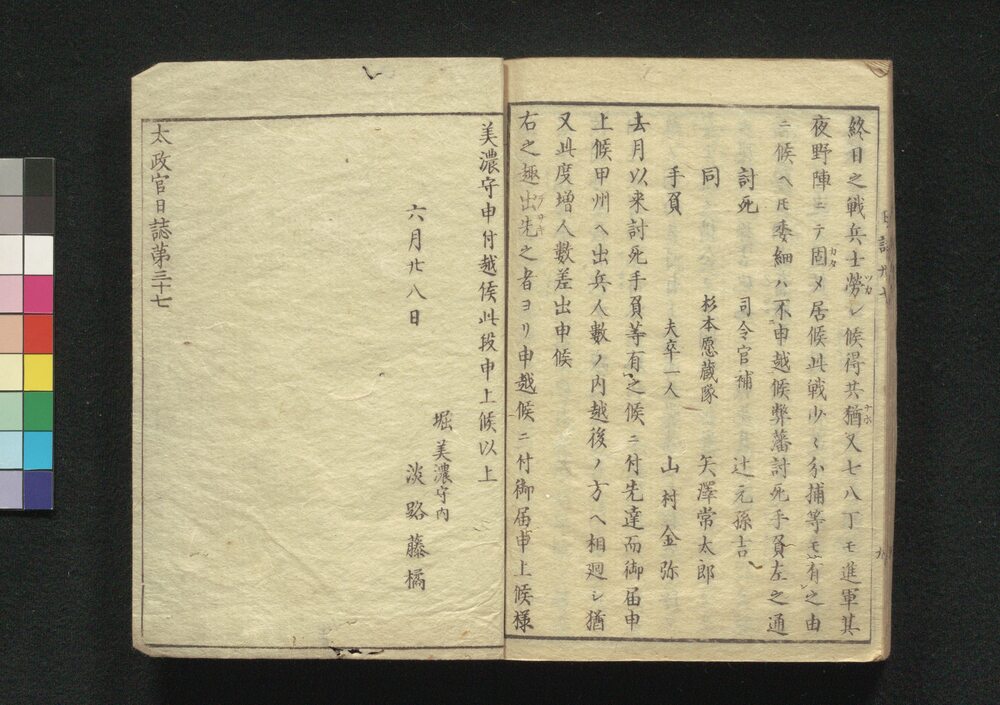 終日之戰兵士勞ツカレ候得共猶ナホ又七八丁モ進軍其
夜野陣ニテ固カタメ居候此戰少〻分捕等モ有之由
ニ候ヘ𪜈委細ハ不申越候弊藩討死手負左之通
討死 司令官補 辻元孫吉
同 杉本愿藏隊 矢澤常太郎
手負 夫卒一人 山村金弥
去月以来討死手負等有之候ニ付先達而御届申
上候甲州ヘ出兵人數ノ内越後ノ方ヘ相廻シ猶
又此度增人數差出申候
右之趣出先之者ヨリ申越候ニ付御届申上候樣
美濃守申付越候此段申上候以上
六月廿八日
堀美濃守内
淡路藤橘
太政官日誌第三十七